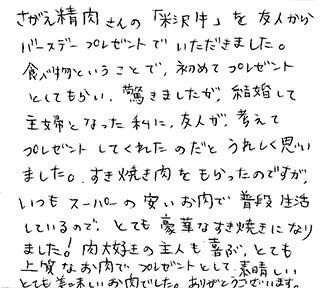 さがえ精肉さんの「米沢牛」を友人から
バースデープレゼントでいただきました。
食べ物ということで、初めてプレゼント
としてもらい、驚きましたが、結婚して
主婦となった私に、友人が、考えて
プレゼントしてくれたのだとうれしく思い
ました。すき焼き肉をもらったのですが、
いつもスーパーの安いお肉で普段生活
しているので、とても豪華なすき焼きになり
ました!肉大好きの主人も喜ぶ、とても
上質なお肉でプレゼントとして素晴しい
とても美味しいお肉でした。ありがとうございます。